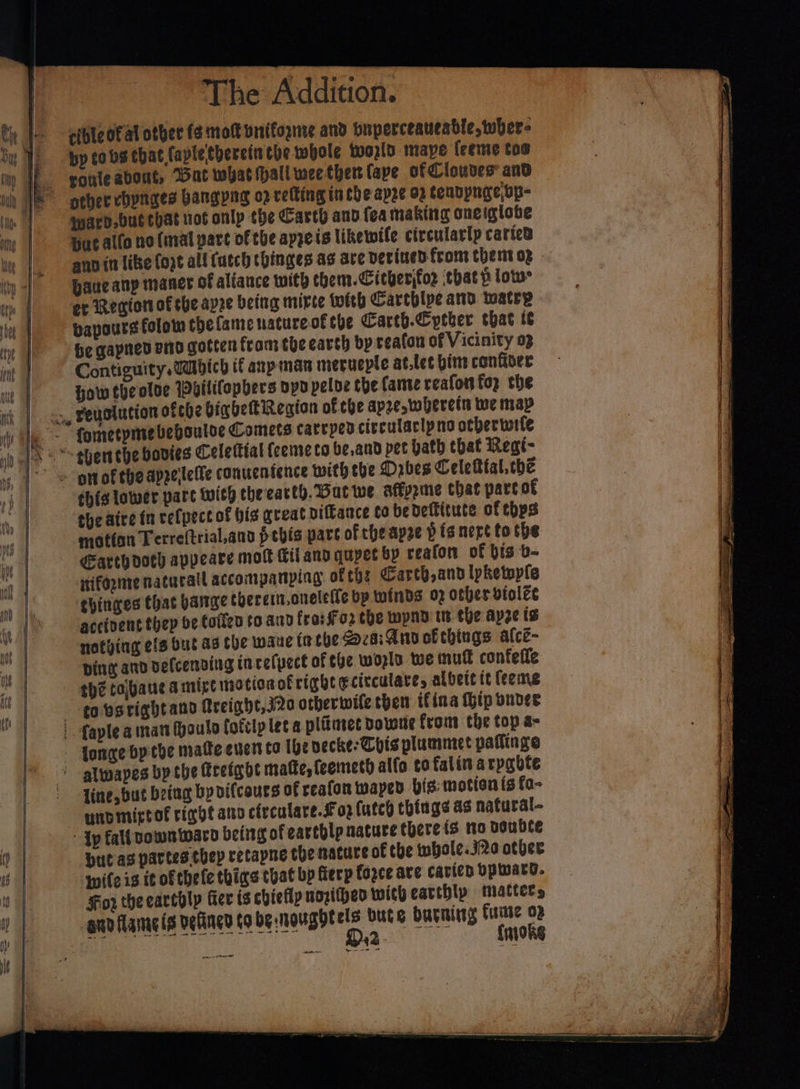 The Addition.
cible of al other is most vniforme and vnperceaueable, wher-
by to vs that sayle therein the whole world maye seeme too
roule about, But what shall wee then saye of Cloudes and
other thynges hangyng or resting in the ayre or tendynge vp-
ward, but that not only the Earth and sea making one globe
but also no smal part of the ayre is likewise circularly caried
and in like sort all sutch thinges as are deriued from them or
haue any maner of aliance with them. Either for that þ low-
er Region of the ayre being mixte with Earthlye and watry
vapours folow the same nature of the Earth. Eyther that it
be gayned and gotten from the earth by reason of Vicinity or
Contiguity. Which if any man merueyle at, let him consider
how the olde Philisophers dyd yelde the same reason for the
reuolution of the highest Region of the ayre, wherein we may
sometyme behoulde Comets carryed circularly no otherwise
then the bodies Celestial seeme to be, and yet hath that Regi-
on of the ayre lesse conuenience with the Orbes Celestial, thẽ
this lower part with the earth. But we affyrme that part of
the aire in respect of his great distance to be destitute of thys
motion Terrestrial, and þ this part of the ayre þ is next to the
Earth doth appeare most stil and quyet by reason of his v-
niforme naturall accompanying of the Earth, and lykewyse
thinges that hange therein, onelesse by winds or other violẽt
accident they be tossed to and fro: For the wynd in the ayre is
nothing els but as the waue in the Sea: And of things ascẽ-
ding and descending in respect of the world we must confesse
thẽ to haue a mixt motion of right & circulare, albeit it seeme
to vs right and streight, No otherwise then if in a ship vnder
sayle a man should softly let a plũmet downe from the top a-
longe by the maste euen to the decke: This plummet passinge
alwayes by the streight maste, seemeth also to fal in a ryghte
line, but being by discours of reason wayed his motion is fo-
und mixt of right and circulare. For sutch things as natural-
ly fall downward being of earthly nature there is no doubte
but as partes they retayne the nature of the whole. No other
wise is it of these thigs that by fiery force are caried vpward.
For the earthly fier is chiefly norished with earthly matter,
and flame is defined to be nought els but a burning fume or
D.2 smoke